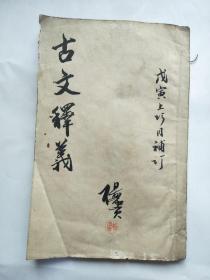 戊寅上巧月補訂
古文釋義
楊